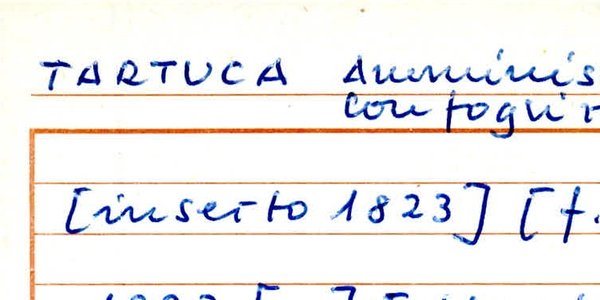 TARTUCA Amminis
con fogli r
[inserto 1823] [f.